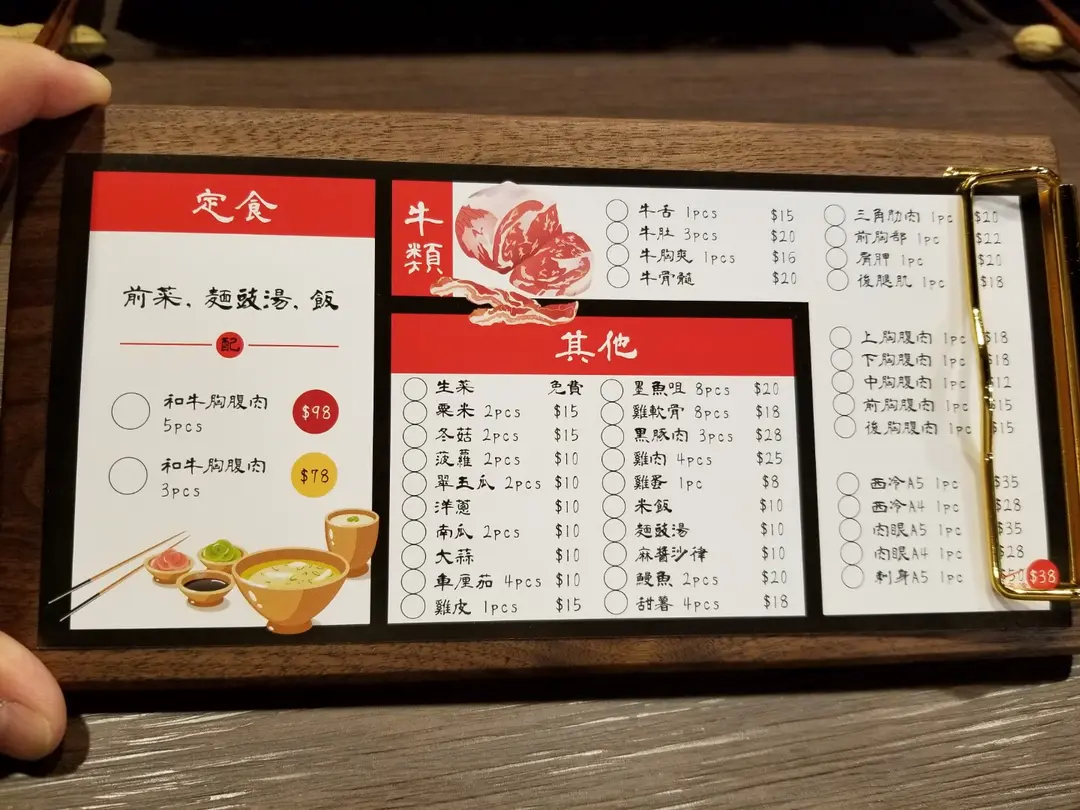 定食
前菜、麵豉湯、飯
配
和牛胸腹肉
5pcs
$98
和牛胸腹肉
3pcs
$78
牛
類
牛舌 1pcs $15
牛肚 3pcs $20
牛胸爽 1pcs $16
牛骨髓 $20
三角肋肉 1pc $20
前胸部 1pc $22
肩胛 1pc $20
後腿肌 1pc $18
上胸腹肉 1pc $18
下胸腹肉 1pc $18
中胸腹肉 1pc $12
前胸腹肉 1pc $15
後胸腹肉 1pc $15
西冷A5 1pc $35
西冷A4 1pc $28
肉眼A5 1pc $35
肉眼A4 1pc $28
刺身A5 1pc $50 $38
其他
生菜 免費
粟米 2pcs $15
冬菇 2pcs $15
菠蘿 2pcs $10
翠玉瓜 2pcs $10
洋蔥 $10
南瓜 2pcs $10
大蒜 $10
車厘茄 4pcs $10
雞皮 1pcs $15
墨魚咀 8pcs $20
雞軟骨 8pcs $18
黑豚肉 3pcs $28
雞肉 4pcs $25
雞蛋 1pc $8
米飯 $10
麵豉湯 $10
麻醬沙律 $10
鰻魚 2pcs $20
甜薯 4pcs $18